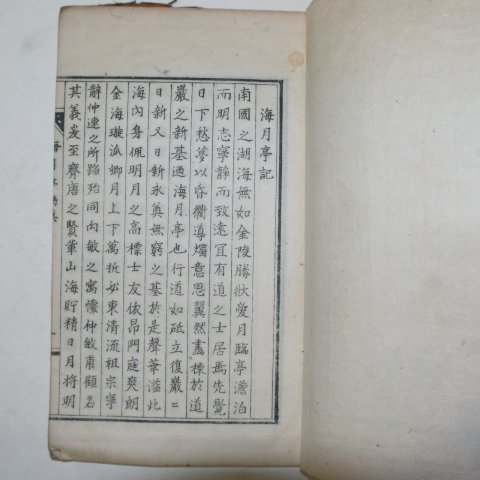 海月亭記
南國之湖海無如金陵勝狀愛月臨亭澹泊
而明志寧靜而致遠宜有道之士居焉先覺
日下愁夢以昏衢導燭意思翼然畵棟於道
嚴之新基適海月亭也行道如砥立復巖〻
日新又日新永奠無窮之基於是聲華溢此
海內身佩明月之高標士友依昂門庭爽朗
金海璇派卿月上下萬折必東清流祖宗寧
辭仲連之所蹈殆同勾敏之寓懷仲敏甫顯名
其義爰至齊唐之賢輩山海貯積日月將明
海月亭